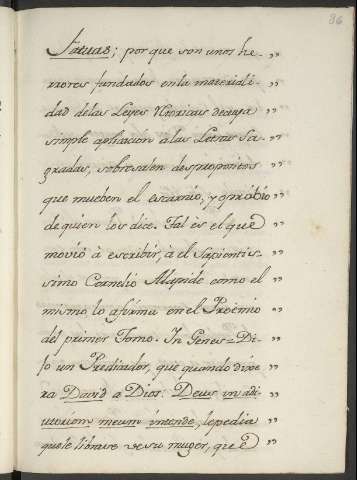 36
fatuas; por que son unos he- "
rrores fundados en la materiali- "
dad de las Leyes Rtoricas de cuya "
simple aplicacion à las Letras Sa- "
gradas, sobresalen despropositos "
que mueben el escarnio, y oprobio "
de quien los dice. Tal ès el que "
movió à escribir, à el Sapientis- "
simo Cornelio Alapide como el "
mismo, lo afirma en el Proemio "
del primer Tomo. In Genes = Di- "
jo un Predicador, que quando dixe- "
ra David a Dios: Deus in adi- "
utorium meum intende, le pedia "
que le librase de su muger, que "